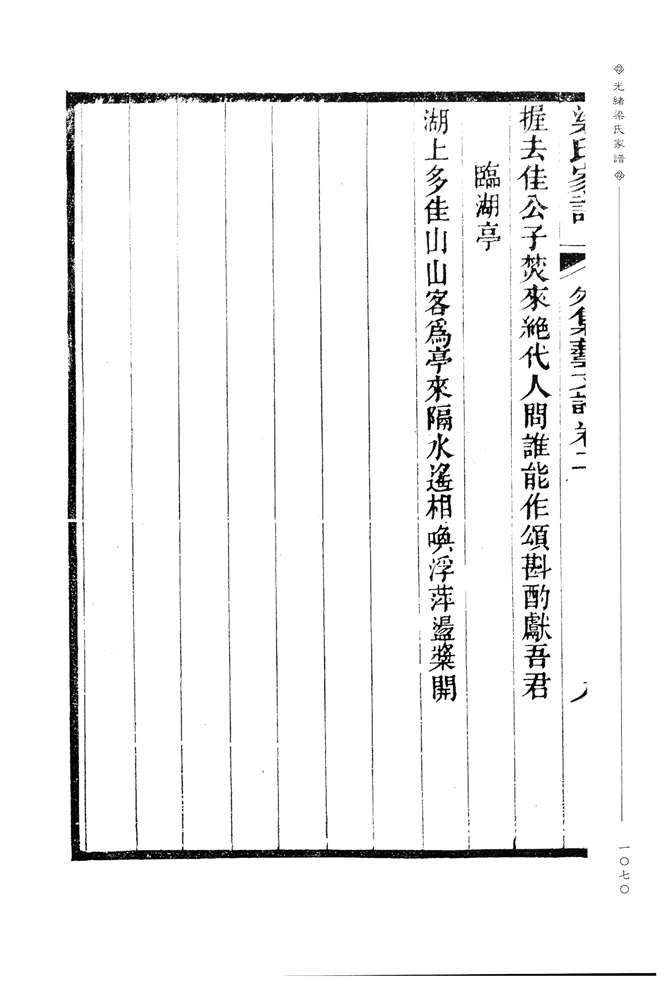 光緒梁氏家譜
梁氏家譜 外集藝文譜卷二 八
握去佳公子焚來絶代人問誰能作頌斟酌獻吾君
臨湖亭
湖上多佳山山客爲亭來隔水遙相喚浮萍盪槳開
一〇七〇